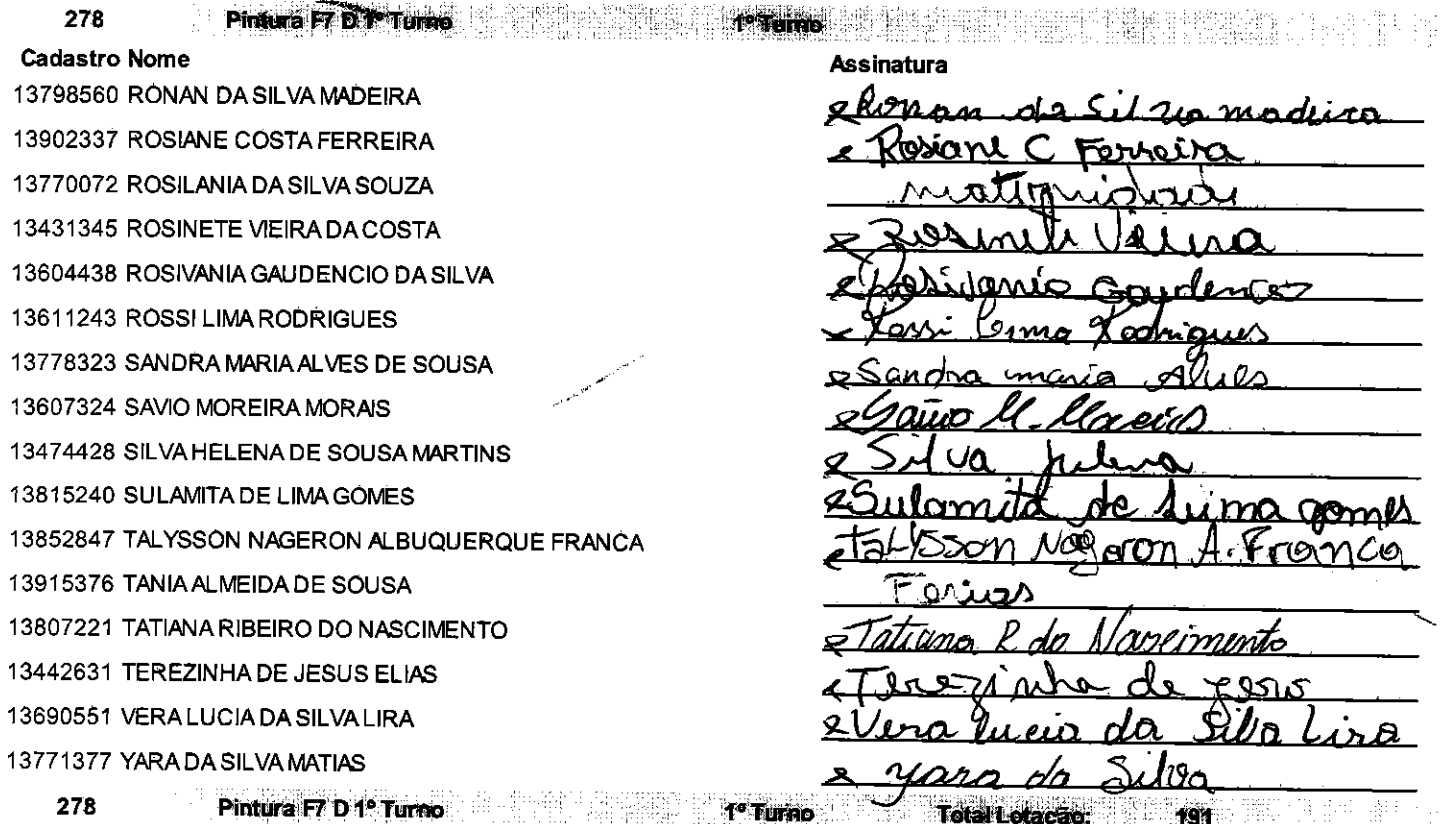 278 Pintura F7 D 1º Turno 1º Turno
Cadastro Nome Assinatura
13798560 RONAN DA SILVA MADEIRA Ronan da Silva madeira
13902337 ROSIANE COSTA FERREIRA Rosiane C Ferreira
13770072 ROSILANIA DA SILVA SOUZA
13431345 ROSINETE VIEIRA DA COSTA Rosinete Vieira
13604438 ROSIVANIA GAUDENCIO DA SILVA Rosivania Gaudencio
13611243 ROSSI LIMA RODRIGUES Rossi Lima Rodrigues
13778323 SANDRA MARIA ALVES DE SOUSA Sandra maria Alves
13607324 SAVIO MOREIRA MORAIS Savio M.
13474428 SILVA HELENA DE SOUSA MARTINS Silva Helena
13815240 SULAMITA DE LIMA GOMES Sulamita de Lima gomes
13852847 TALYSSON NAGERON ALBUQUERQUE FRANCA TaLYSSon Nageron A. Franca
13915376 TANIA ALMEIDA DE SOUSA Ferias
13807221 TATIANA RIBEIRO DO NASCIMENTO Tatiana R do Nascimento
13442631 TEREZINHA DE JESUS ELIAS Terezinha de
13690551 VERA LUCIA DA SILVA LIRA Vera lucia da Silva Lira
13771377 YARA DA SILVA MATIAS yara da Silva
278 Pintura F7 D 1º Turno 1º Turno Total Lotação: 191